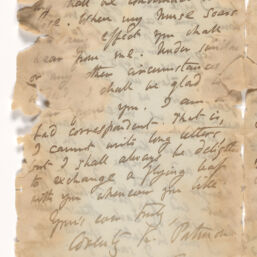 shall we
When my Nurse Soars
effect you shall
hear from me. Under similar
or any other circumstances
shall be glad
you. I am a
bad correspondent. That is,
I cannot write long letters,
but I shall always be delighted
to exchange a flying leaf
with you whenever you like
Yours ever truly,
Coventry K. Patmore